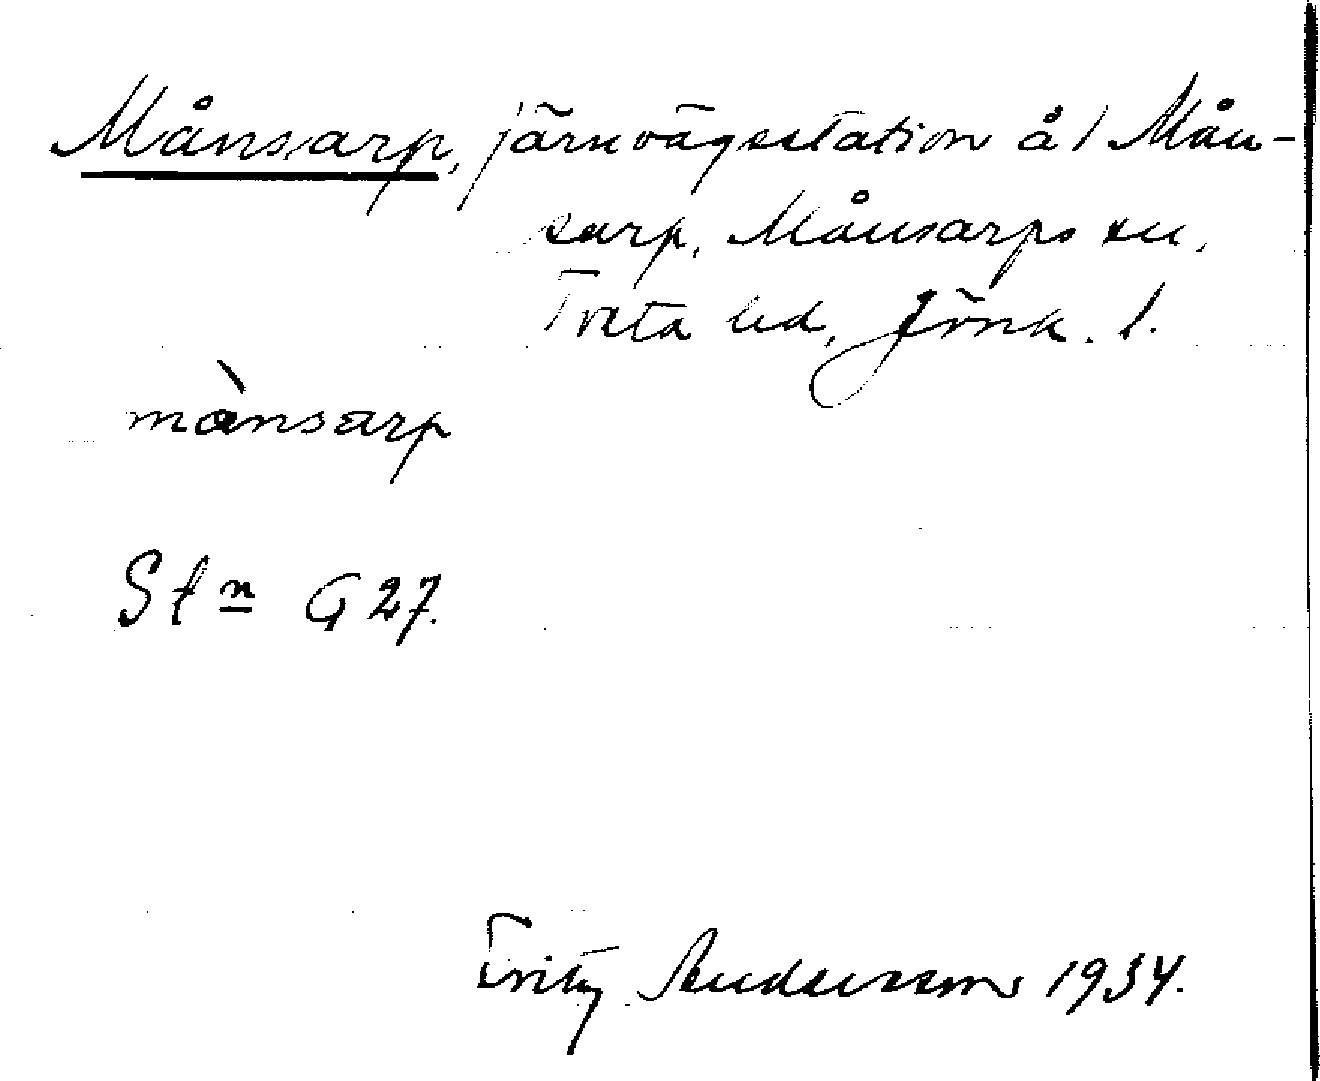 Månsarp, järnvägsstation å 1 Mån-
sarp, Månsarps sn,
Tveta hd, Jönk. l.
mànsarp
Stn G 27.
Fritz Andersson 1934.